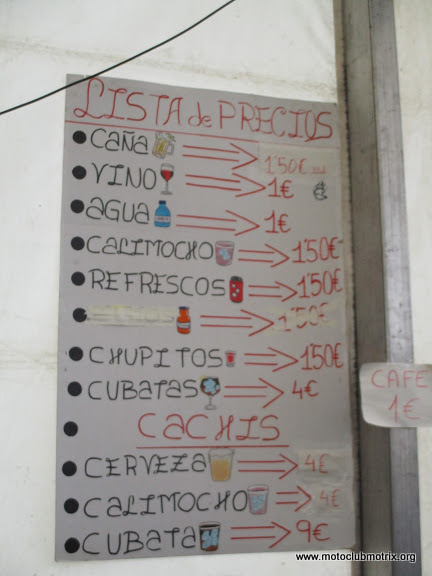 LISTA de PRECIOS
CAÑA 1'50€
VINO 1€
AGUA 1€
CALIMOCHO 1'50€
REFRESCOS 1'50€
1'50€
CHUPITOS 1'50€
CUBATAS 4€
CACHIS
CERVEZA 4€
CALIMOCHO 4€
CUBATA 9€
CAFE
1€
www.motoclubmotrix.org